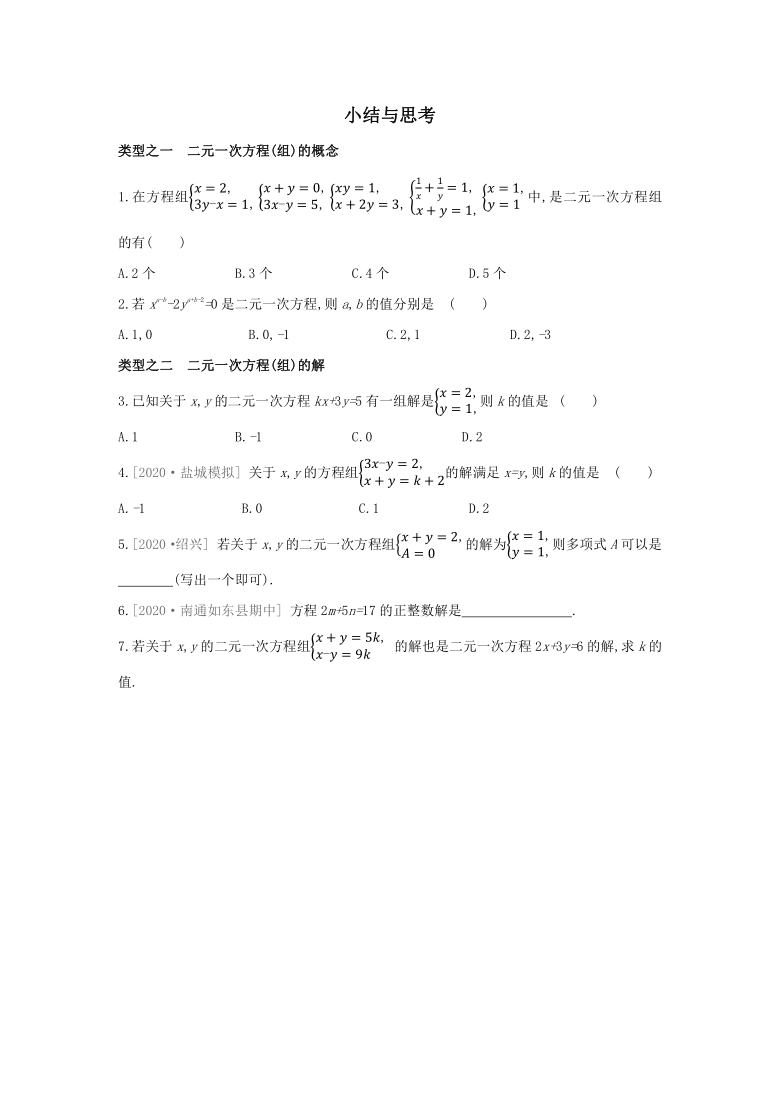 小结与思考
类型之一 二元一次方程(组)的概念
1.在方程组{x=2, 3y-x=1, {x+y=0, 3x-y=5, {xy=1, x+2y=3, {1/x+1/y=1, x+y=1, {x=1, y=1 中,是二元一次方程组
的有( )
A.2个 B.3个 C.4个 D.5个
2.若 x^{a-b}-2y^{a+b-2}=0 是二元一次方程,则 a,b 的值分别是 ( )
A.1,0 B.0,-1 C.2,1 D.2,-3
类型之二 二元一次方程(组)的解
3.已知关于 x,y 的二元一次方程 kx+3y=5 有一组解是{x=2, y=1, 则 k 的值是 ( )
A.1 B.-1 C.0 D.2
4.[2020·盐城模拟] 关于 x,y 的方程组{3x-y=2, x+y=k+2 的解满足 x=y,则 k 的值是 ( )
A.-1 B.0 C.1 D.2
5.[2020·绍兴] 若关于 x,y 的二元一次方程组{x+y=2, A=0 的解为{x=1, y=1, 则多项式 A 可以是
________(写出一个即可).
6.[2020·南通如东县期中] 方程 2m+5n=17 的正整数解是________________.
7.若关于 x,y 的二元一次方程组{x+y=5k, x-y=9k 的解也是二元一次方程 2x+3y=6 的解,求 k 的
值.